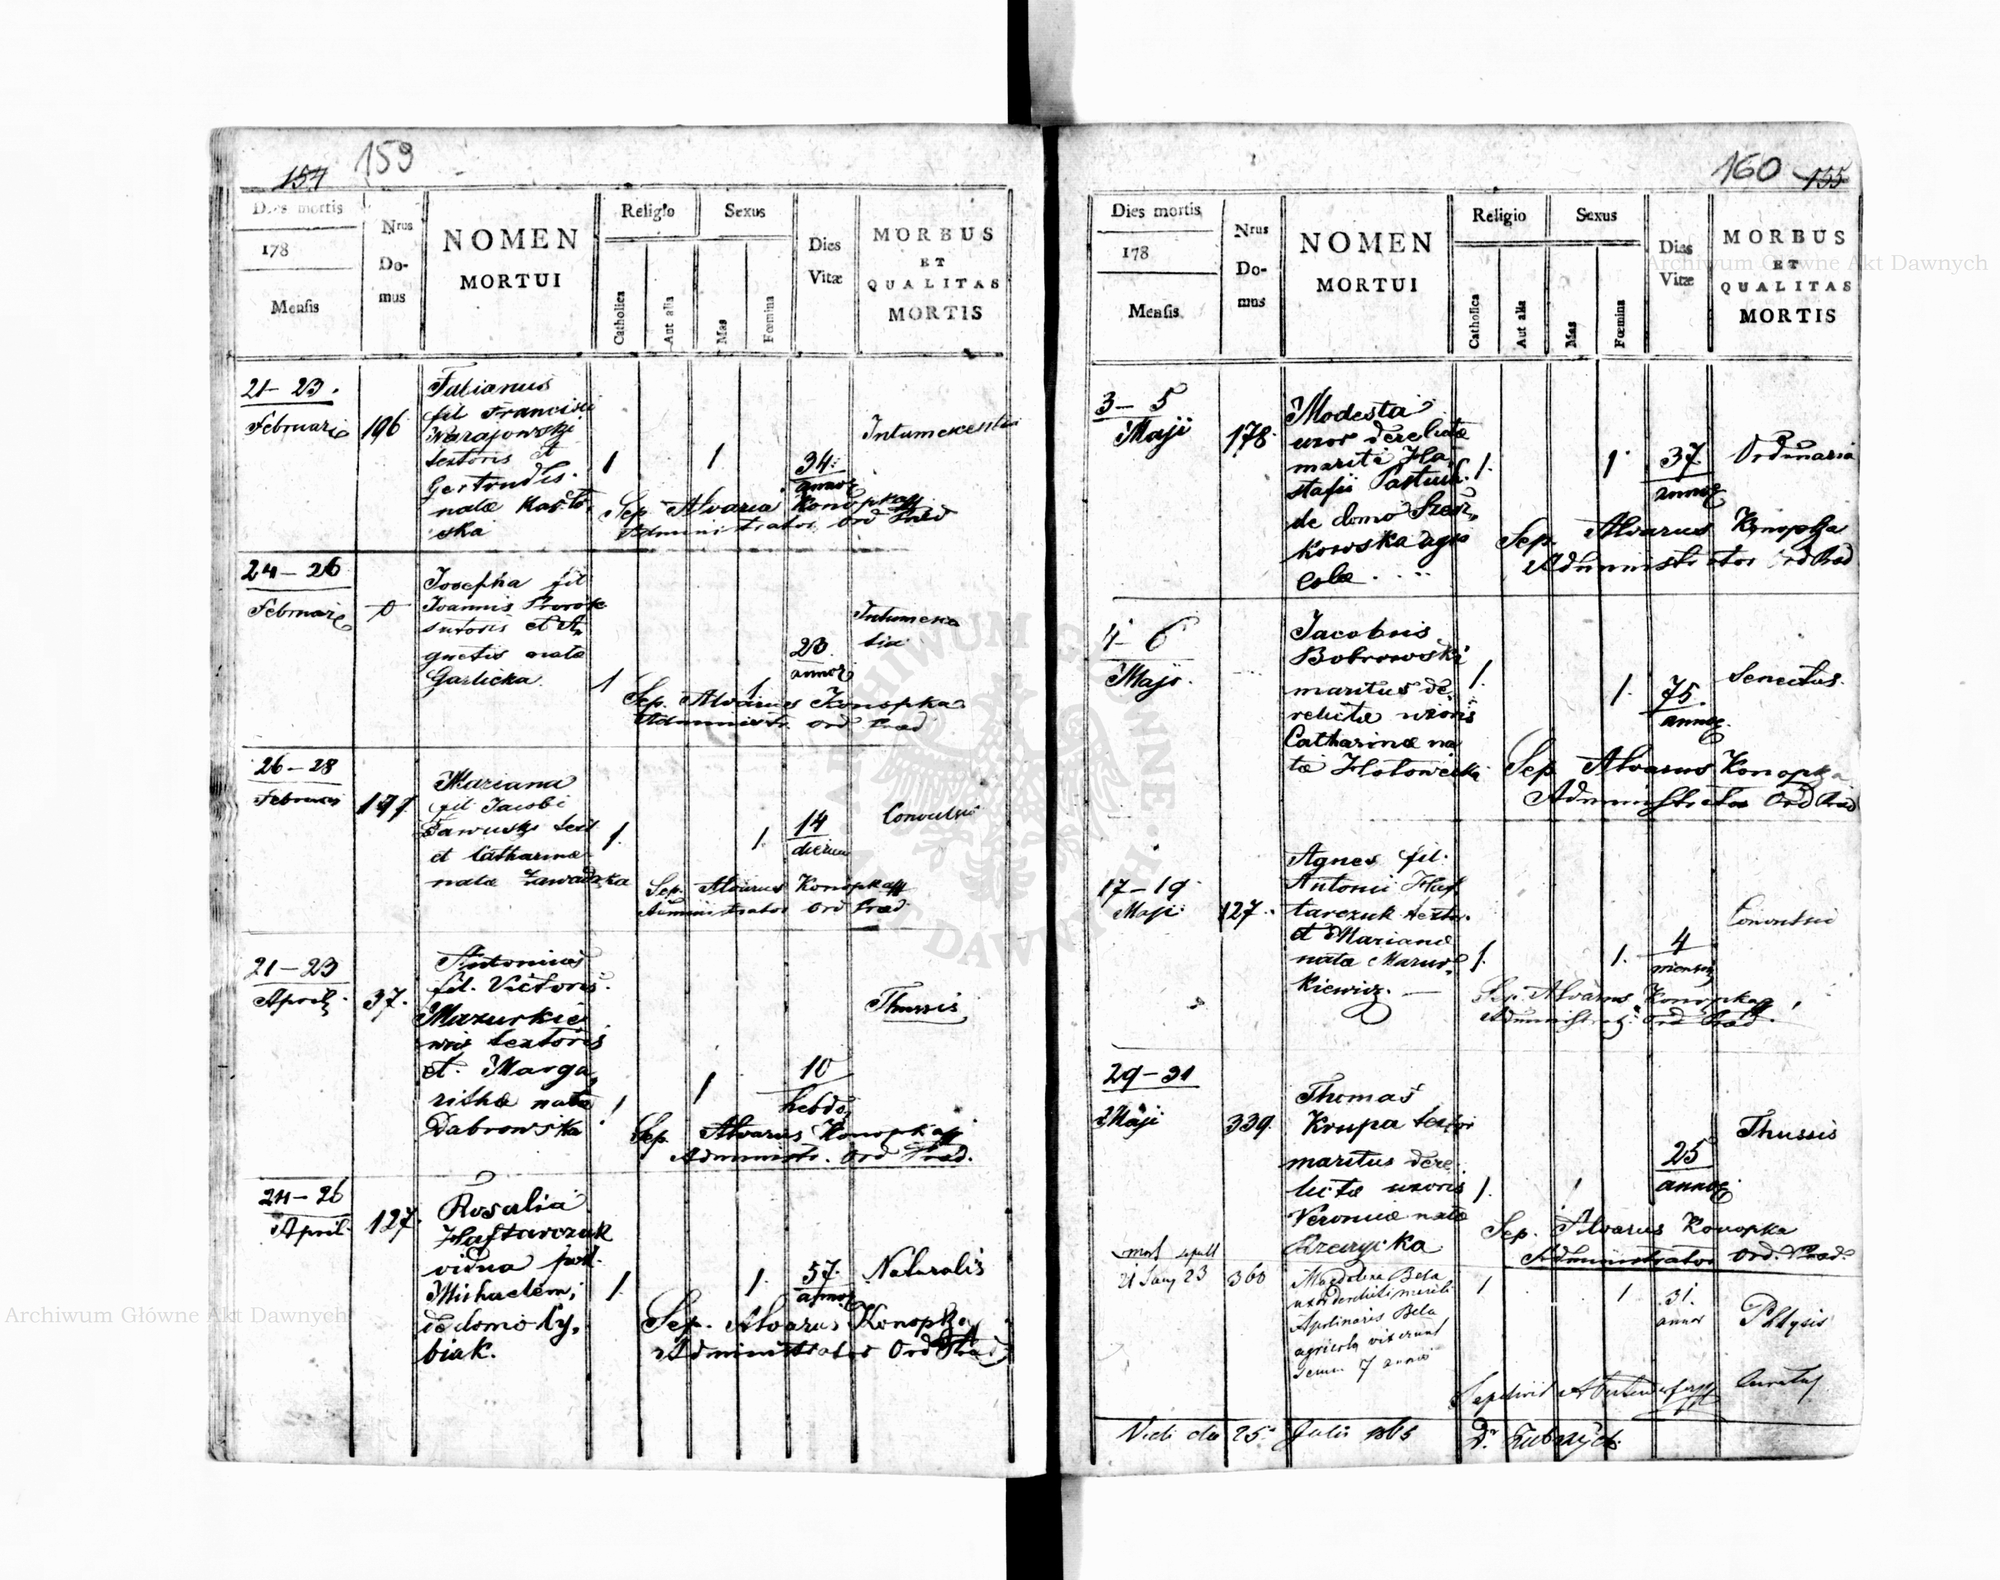 154 159
Dies mortis
178
Mensis
Nrus
Do-
mus
NOMEN
MORTUI
Religio
Catholica
Aut alia
Sexus
Mas
Fœmina
Dies
Vitæ
MORBUS
ET
QUALITAS
MORTIS
21-23.
Februarii
196
Fabianus
fil Francisci
textoris et
Gertrudis
natæ
ska
1
1
34.
annor
Intumescentia
Sep Alvarus Konopka
Administrator Ord Præd
24-26
Februarii
0
Josepha fil
Joannis
sutoris et A
gnetis nata
Garlicka.
1
1
23
annor
Intumescen
tia
Sep. Alvarus Konopka
Administr Ord Præd
26-28
Februarii
177
Mariana
fil Jacobi
et Catharinæ
natæ Zawadzka
1.
1.
14
dierum
Convulsii
Sep. Alvarus Konopka
Administrator Ord Præd
21-23
Aprilis
37.
Antonius
fil. Victoris
Mazurkie
wicz textoris
et Marga
rithæ nata
Dabrowska
1
1
10
hebdo
Thussis
Sep Alvarus Konopka
Administr. Ord Præd.
24-26
April.
127.
Rosalia
Haftarczuk
vidua post.
Michaelem,
de domo Ly,
biak.
1.
1.
57.
annor
Naturalis
Sep. Alvarus Konopka
Administrator Ord Præd
160 155
Dies mortis
178
Mensis
Nrus
Do-
mus
NOMEN
MORTUI
Religio
Catholica
Aut alia
Sexus
Mas
Fœmina
Dies
Vitæ
MORBUS
ET
QUALITAS
MORTIS
3-5
Maji
178.
Modesta
uxor derelicta
mariti
de domo
kowska agri
colæ
1.
1.
37.
annor
Ordinaria
Sep. Alvarus Konopka
Administrator Ord Præd
4-6
Maji.
Jacobus
Bobrowski
maritus de
relictæ uxoris
Catharinæ na
tæ
1.
1.
75.
annor
Senectus.
Sep Alvarus Konopka
Administrator Ord Præd
17-19
Maji
127.
Agnes fil.
Antonii Haf
tarczuk textor.
et Marianæ
nata Mazur
kiewicz.
1.
1.
4
mensis
Convulsii
Sep. Alvarus Konopka
Administr. Ord Præd.
29-31
Maji
339.
Thomas
Krupa textor
maritus dere
lictæ uxoris
Veronicæ nata
1.
1
25
annor
Thussis
Sep. Alvarus Konopka
Administrator Ord. Præd.
mort sepult
21 Jany 23
360
Magdalena Bela
uxor derelicti mariti
Apolinaris Bela
agricola
7 annis
1
1
31.
annor
Phtysis
Sepelivit
Curatus
Vidi die 25. Julii 1865
Archiwum Główne Akt Dawnych
Archiwum Główne Akt Dawnych
ARCHIWUM GŁÓWNE AKT DAWNYCH